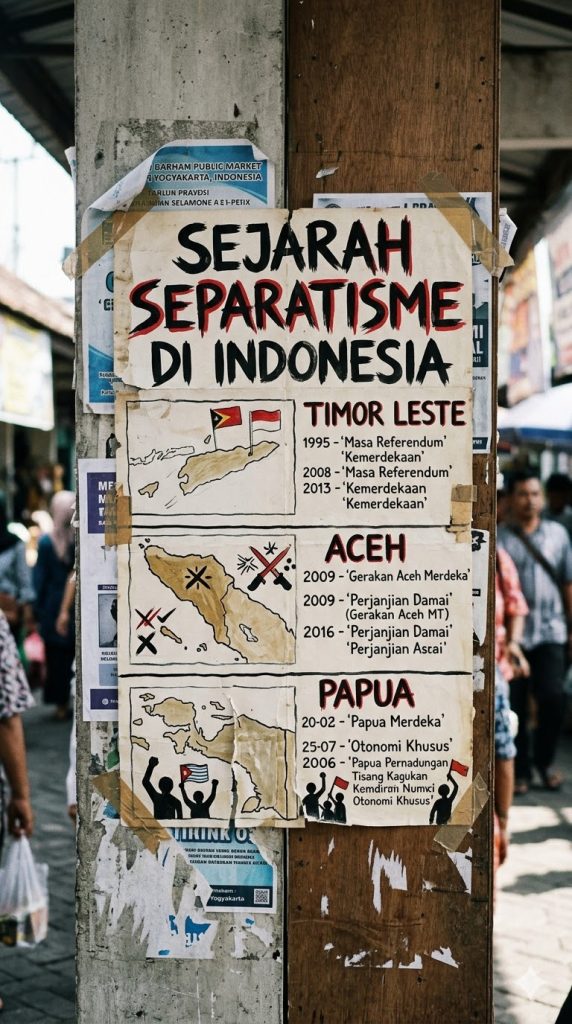 BARHAM PUBLIC MARKET
YOGYAKARTA, INDONESIA
SEJARAH
SEPARATISME
DI INDONESIA
TIMOR LESTE
1995 - 'Masa Referendum'
'Kemerdekaan'
2008 - 'Masa Referendum'
2013 - 'Kemerdekaan
Kemerdekaan'
ACEH
2009 - 'Gerakan Aceh Merdeka'
2009 - 'Perjanjian Damai'
(Gerakan Aceh MT)
2016 - 'Perjanjian Damai'
'Perjanjian Ascai'
PAPUA
20-02 - 'Papua Merdeka'
25-07 - 'Otonomi Khusus'
2006 - 'Papua Pernadungan
Tisang Kagukan
Kemdiran Numci
Otonomi Khusus'
Yogyakarta